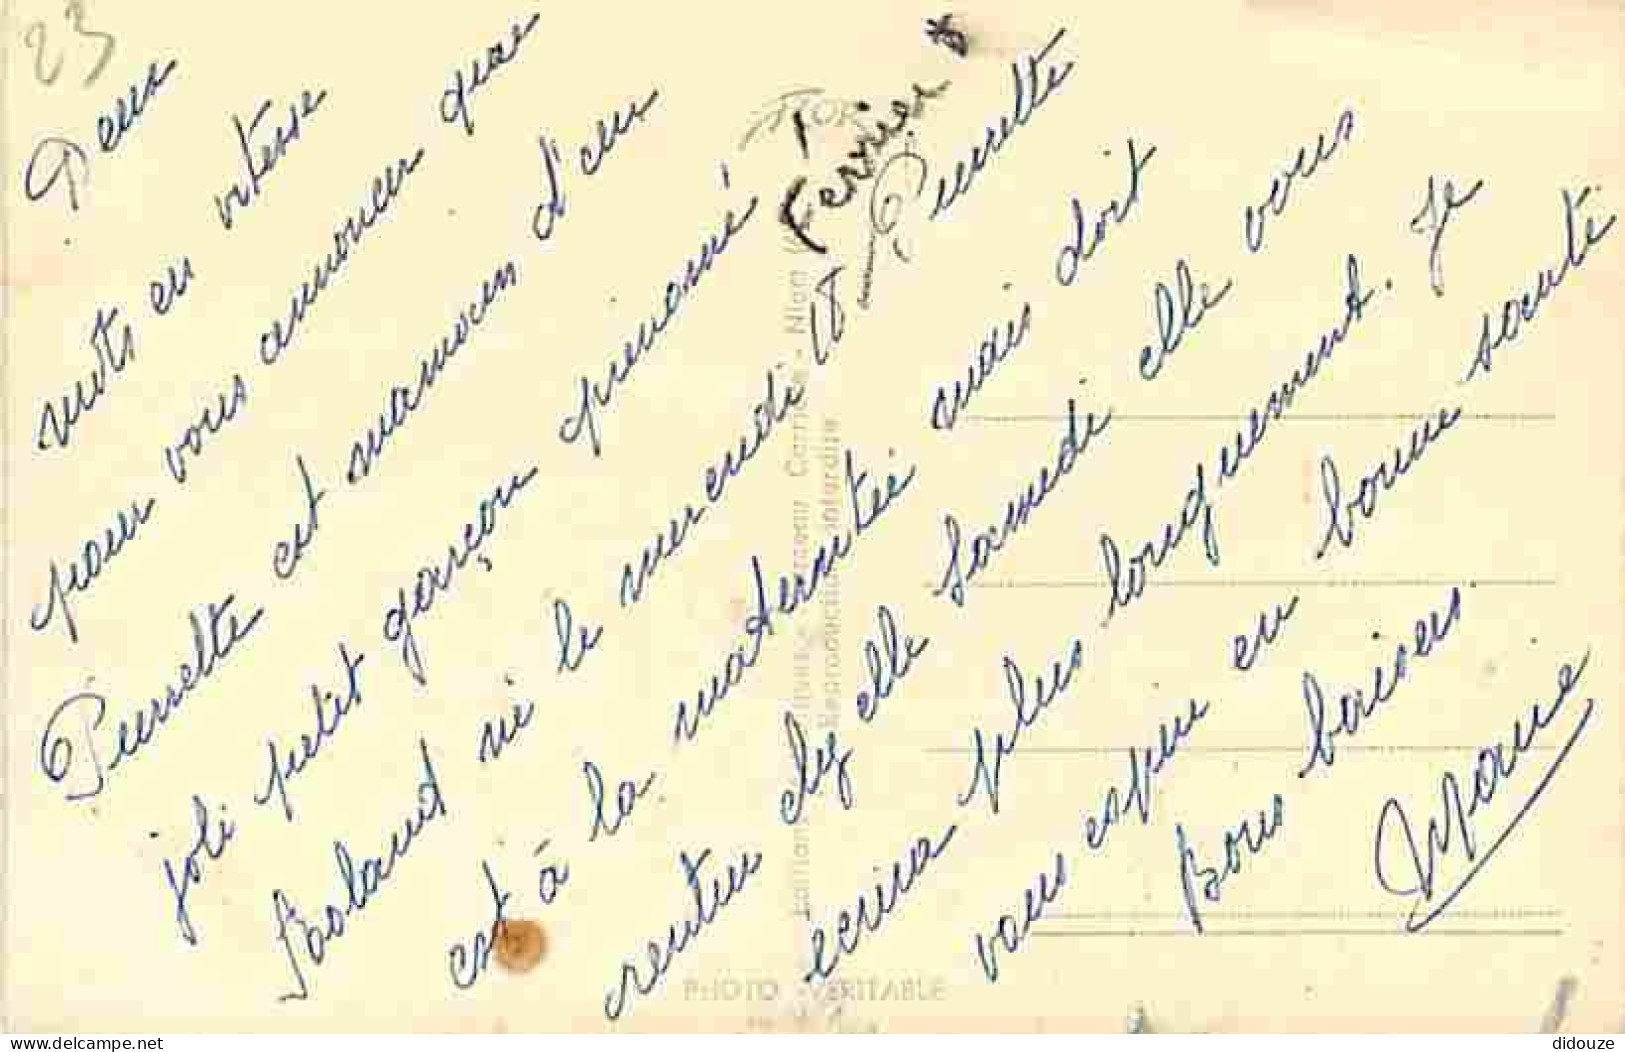 23
Deux
mots en vitesse
pour vous annoncer que
Pierrette est maman d'un
joli petit garçon prénommé
Roland né le mercredi 18 Fevrier *
Pierrette
est à la maternité mais doit
rentrer chez elle Samedi elle vous
écrira plus longuement. Je
vous espère en bonne santé
Bons baisers
Yvonne
Niort
Reproduction interdite
PHOTO VERITABLE
didouze